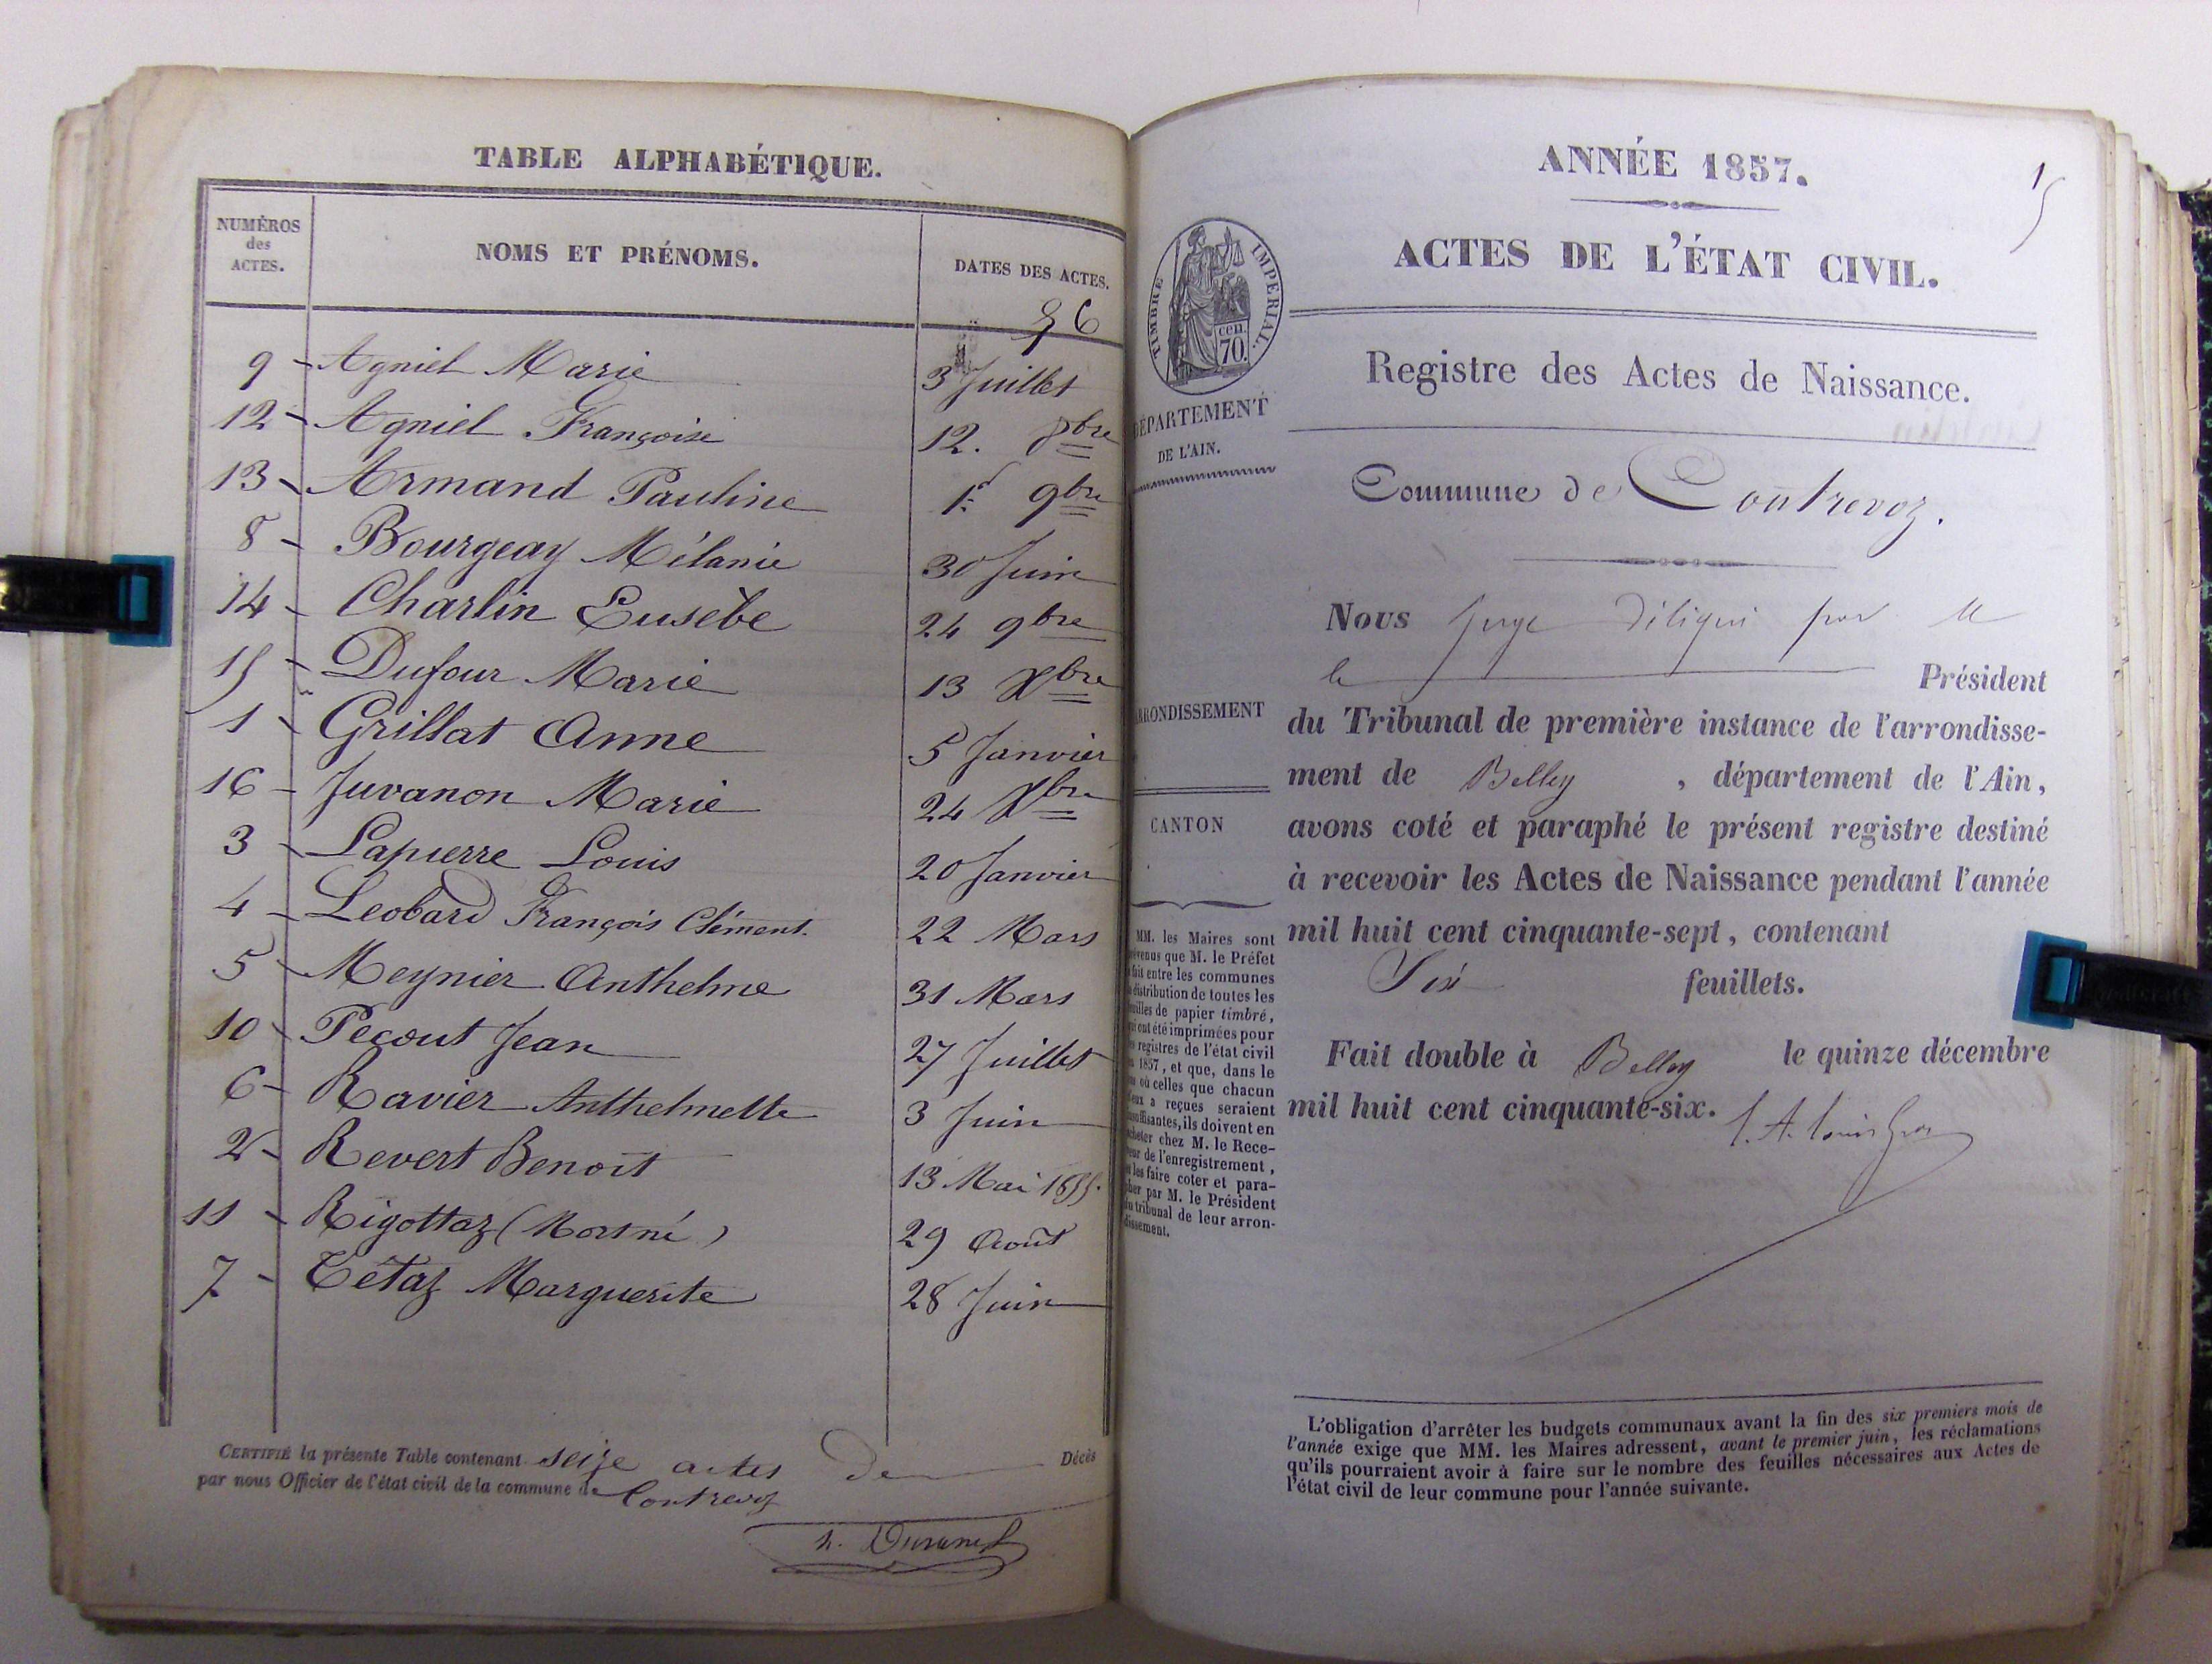 TABLE ALPHABÉTIQUE.
NUMÉROS des ACTES.
NOMS ET PRÉNOMS.
DATES DES ACTES.
9 - Agniel Marie 3 Juillet
12 - Agniel Françoise 12. 8bre
13 - Armand Pauline 1er 9bre
8 - Bourgeay Mélanie 30 Juin
14 - Charlin Eusèbe 24 9bre
15 - Dufour Marie 13 Xbre
1 - Grillat Anne 5 Janvier
16 - Juvanon Marie 24 Xbre
3 - Lapierre Louis 20 Janvier
4 - Leobard François Clément. 22 Mars
5 - Meynier Anthelme 31 Mars
10 - Pecout Jean 27 Juillet
6 - Ravier Anthelmette 3 Juin
2 - Revert Benoit 13 Mai 1855.
11 - Rigottaz (Mortné) 29 Août
7 - Tétaz Marguerite 28 Juin
CERTIFIÉ la présente Table contenant seize actes de Décès
par nous Officier de l'état civil de la commune de Contrevoz
ANNÉE 1857.
ACTES DE L'ÉTAT CIVIL.
TIMBRE IMPERIAL.
cen.
70.
DÉPARTEMENT
DE L'AIN.
Registre des Actes de Naissance.
Commune de Contrevoz.
Nous juge délégué par M
le Président
du Tribunal de première instance de l'arrondisse-
ment de Belley , département de l'Ain,
avons coté et paraphé le présent registre destiné
à recevoir les Actes de Naissance pendant l'année
mil huit cent cinquante-sept, contenant
Six feuillets.
Fait double à Belley le quinze décembre
mil huit cent cinquante-six.
ARRONDISSEMENT
CANTON
MM. les Maires sont
prévenus que M. le Préfet
a fait entre les communes
la distribution de toutes les
feuilles de papier timbré,
qui ont été imprimées pour
les registres de l'état civil
de 1857, et que, dans le
cas où celles que chacun
d'eux a reçues seraient
insuffisantes, ils doivent en
acheter chez M. le Rece-
veur de l'enregistrement,
et les faire coter et para-
pher par M. le Président
du tribunal de leur arron-
dissement.
L'obligation d'arrêter les budgets communaux avant la fin des six premiers mois de
l'année exige que MM. les Maires adressent, avant le premier juin, les réclamations
qu'ils pourraient avoir à faire sur le nombre des feuilles nécessaires aux Actes de
l'état civil de leur commune pour l'année suivante.